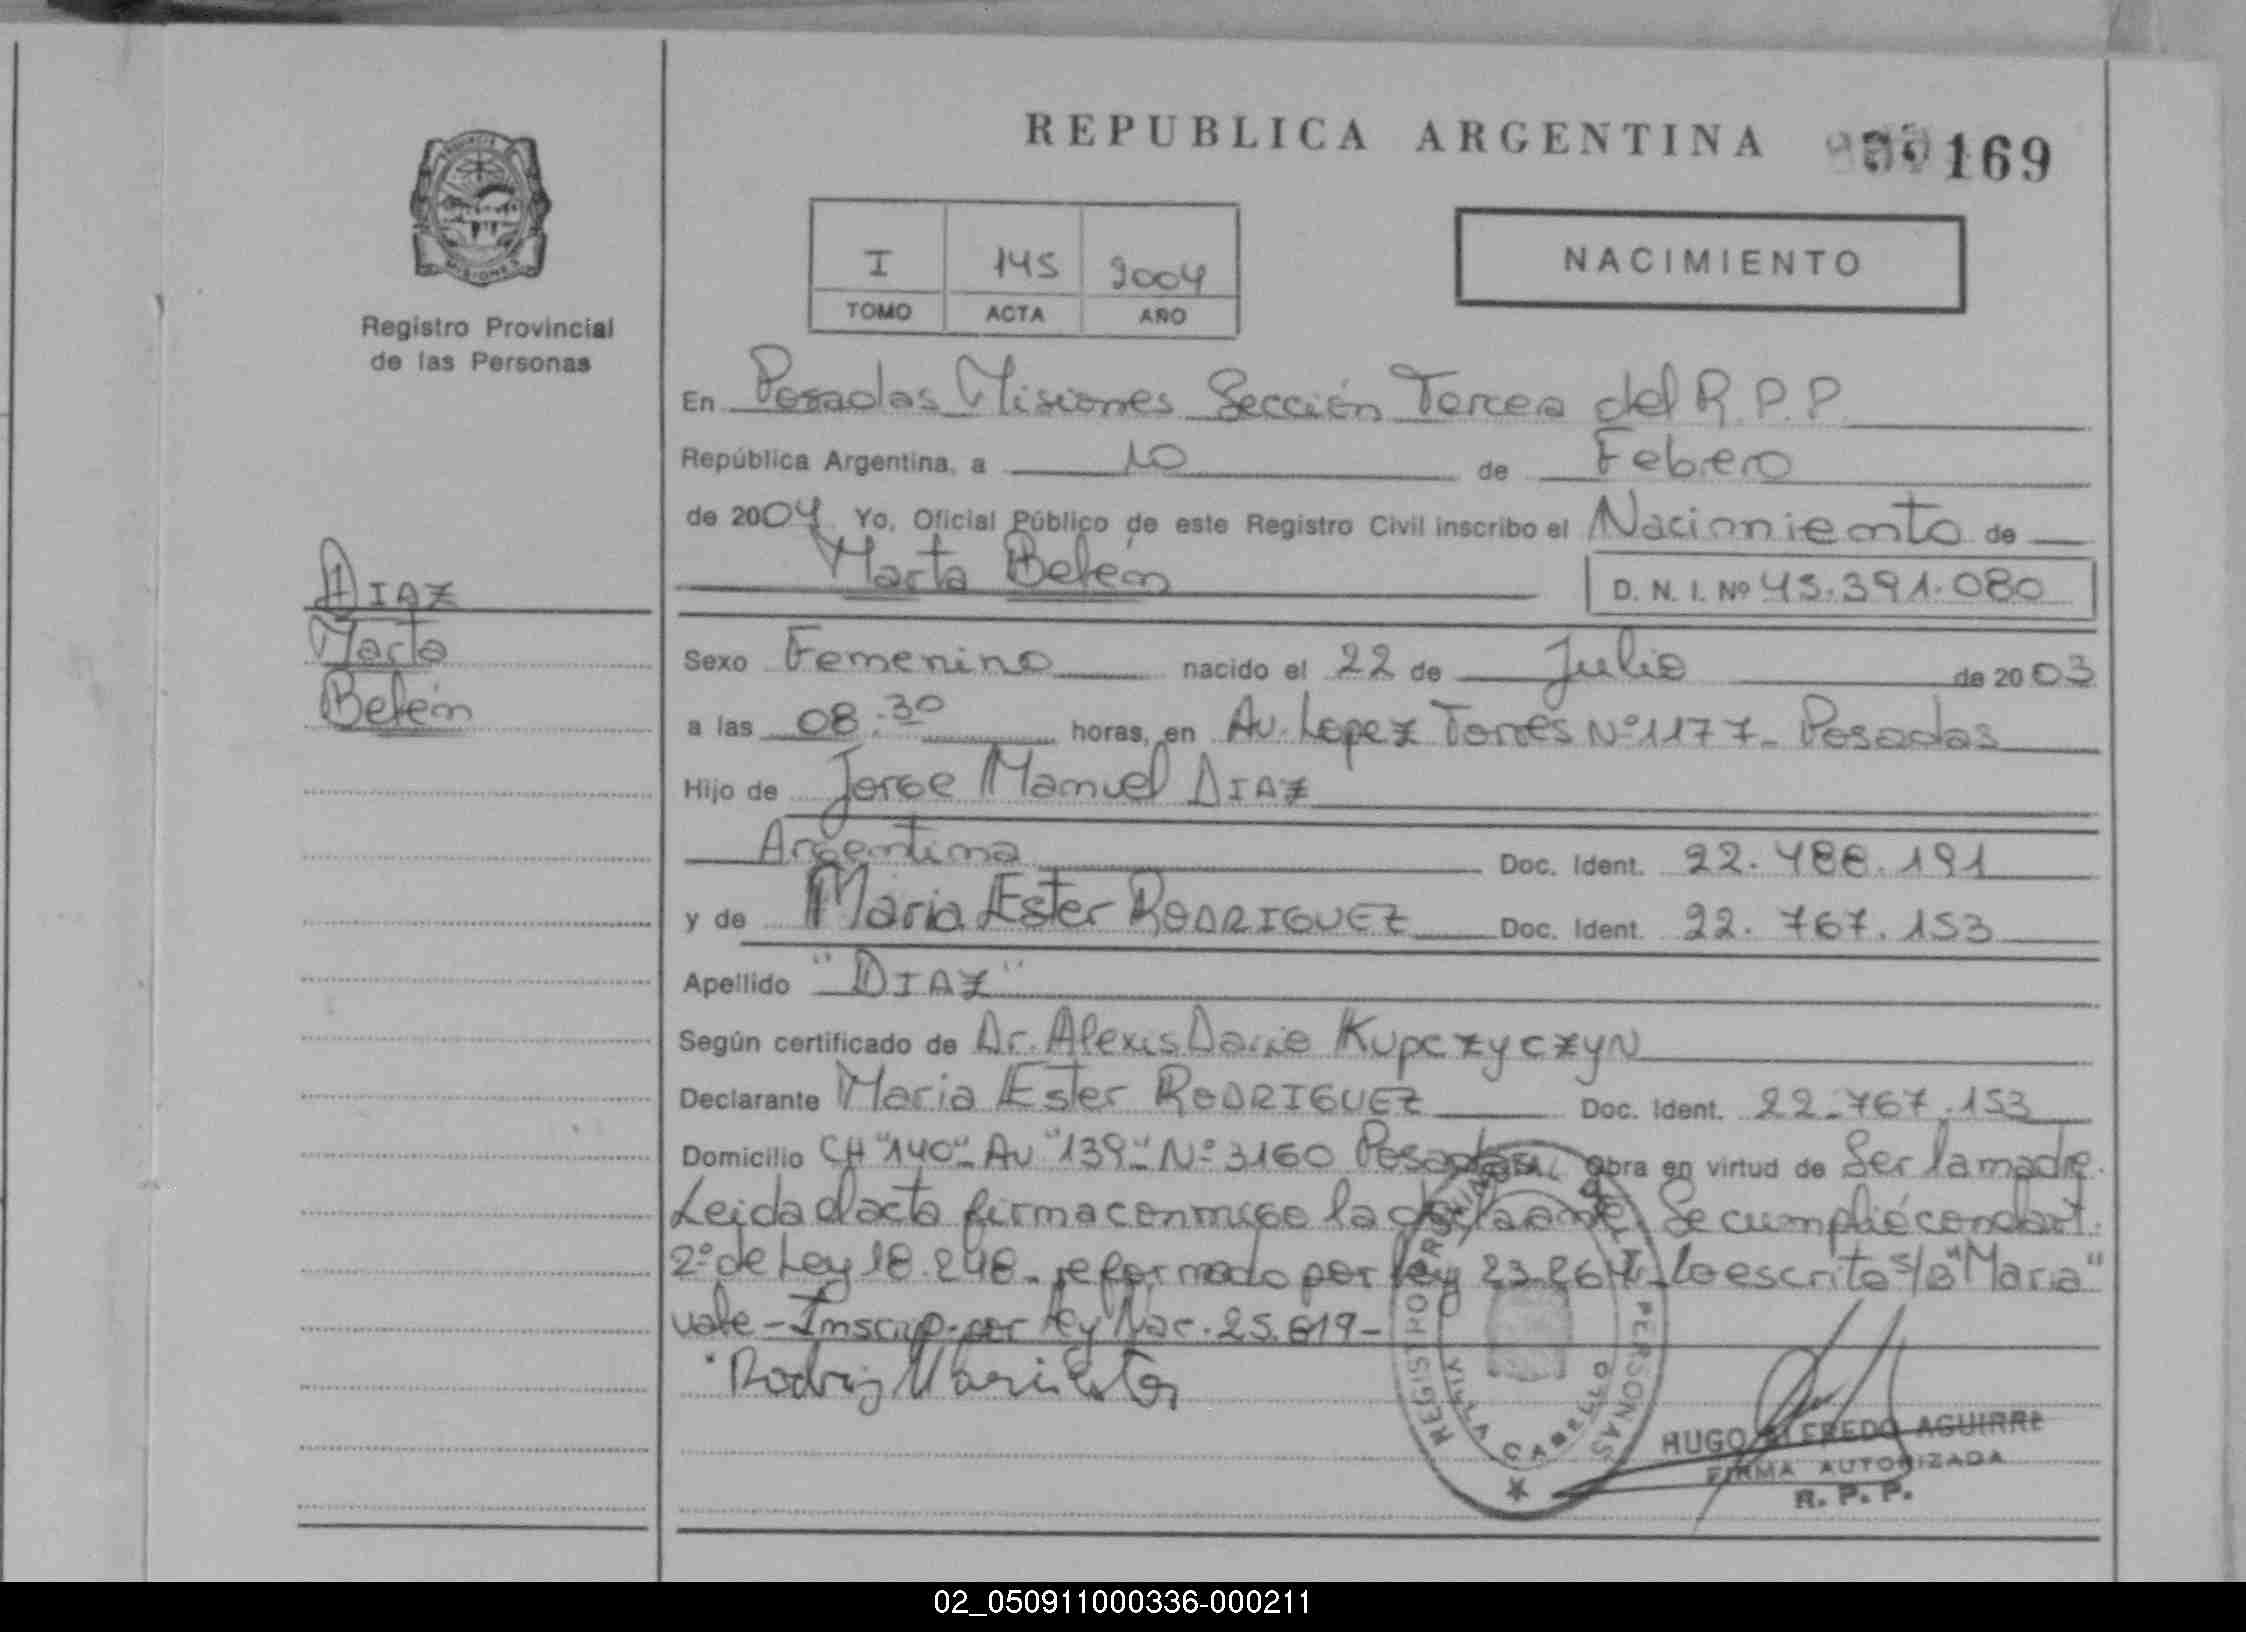 REPUBLICA ARGENTINA
169
MISIONES
Registro Provincial
de las Personas
I 145 2004
TOMO ACTA AÑO
NACIMIENTO
En Posadas Misiones Sección Tercera del R.P.P.
República Argentina, a 10 de Febrero
de 2004 Yo, Oficial Público de este Registro Civil inscribo el Nacimiento de
Marta Belén
D. N. I. Nº 45.391.080
DIAZ
Marta
Belén
Sexo Femenino nacido el 22 de Julio de 2003
a las 08:30 horas, en Av. Lopez Torres Nº 1177- Posadas
Hijo de Jorge Manuel DIAZ
Argentina Doc. Ident. 22.488.191
y de Maria Ester RODRIGUEZ Doc. Ident. 22.767.153
Apellido "DIAZ"
Según certificado de Dr. Alexis Dario KUPCZYCZYN
Declarante Maria Ester RODRIGUEZ Doc. Ident. 22.767.153
Domicilio CH "140"- Av "139"- Nº 3160 Posadas obra en virtud de Ser la madre.
Leida el acta firma conmigo la declarante. Se cumplió con el art.
2º de Ley 18.248- reformado por ley 23.264- Lo escrito s/o "Maria"
vale - Inscrip. por Ley Nac. 25.819-
Rodrig Maria Ester
REGISTRO PROVINCIAL DE LAS PERSONAS
VILLA CABELLO
HUGO ALFREDO AGUIRRE
FIRMA AUTORIZADA
R. P. P.
02_050911000336-000211